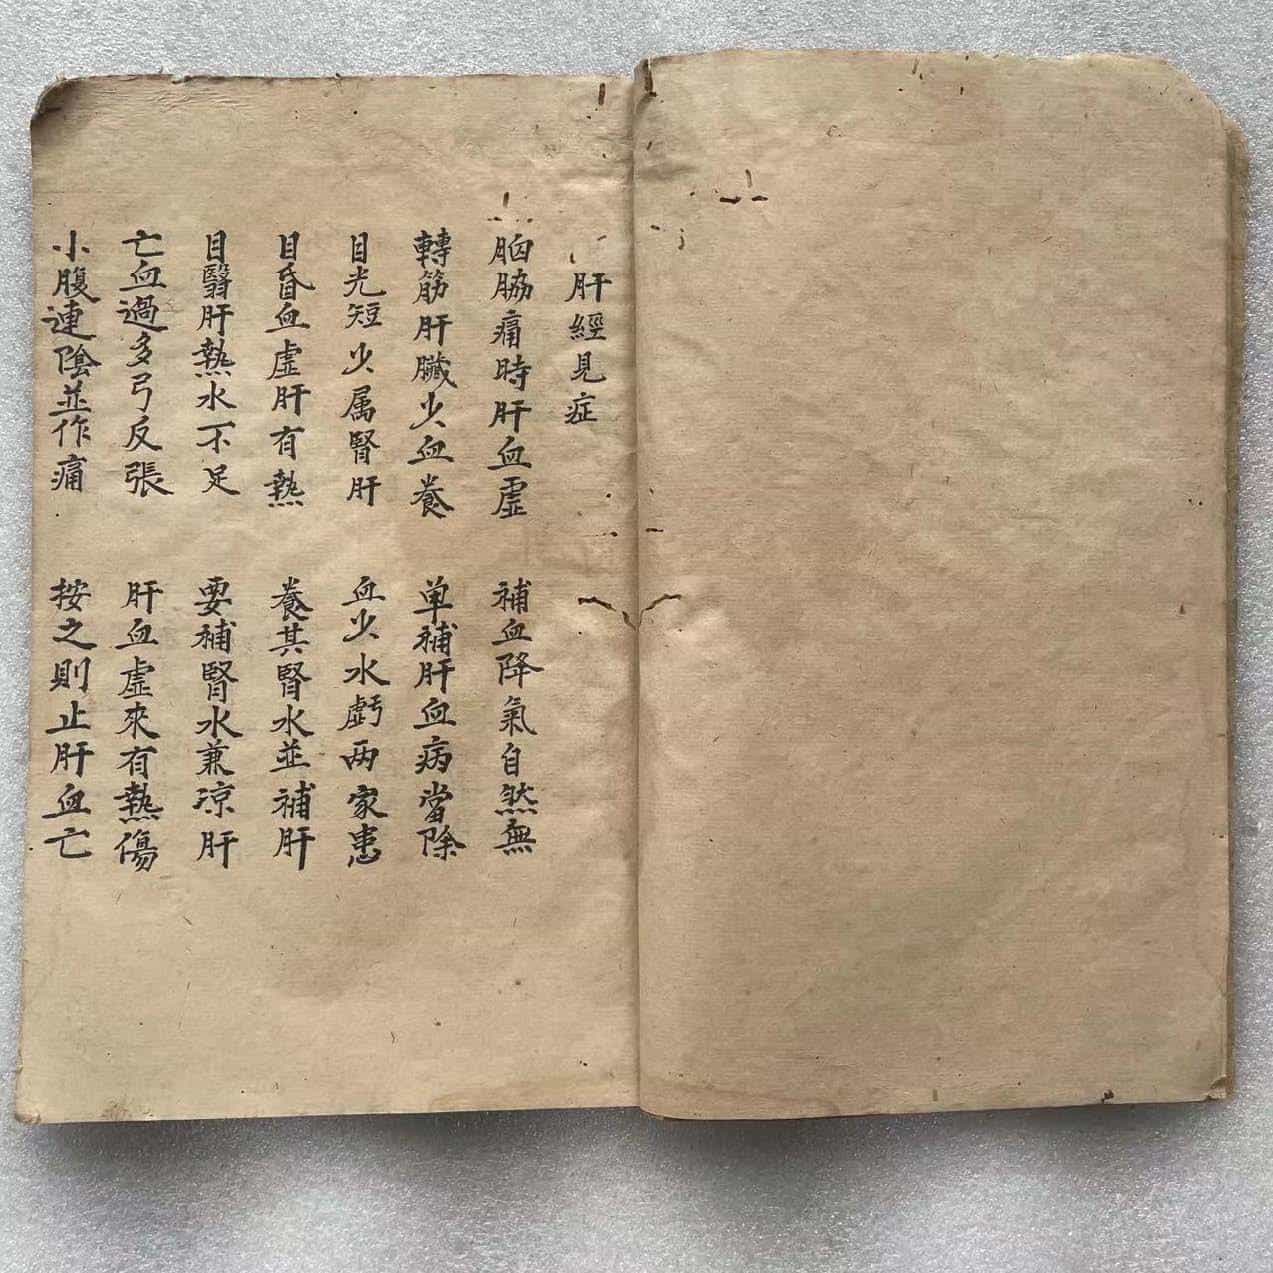 肝經見症
胸脇痛時肝血虛　補血降氣自然無
轉筋肝臟少血養　单補肝血病當除
目光短少属腎肝　血少水虧两家患
目昏血虛肝有熱　養其腎水並補肝
目翳肝熱水不足　要補腎水兼凉肝
亡血過多弓反張　肝血虛來有熱傷
小腹連陰並作痛　按之則止肝血亡